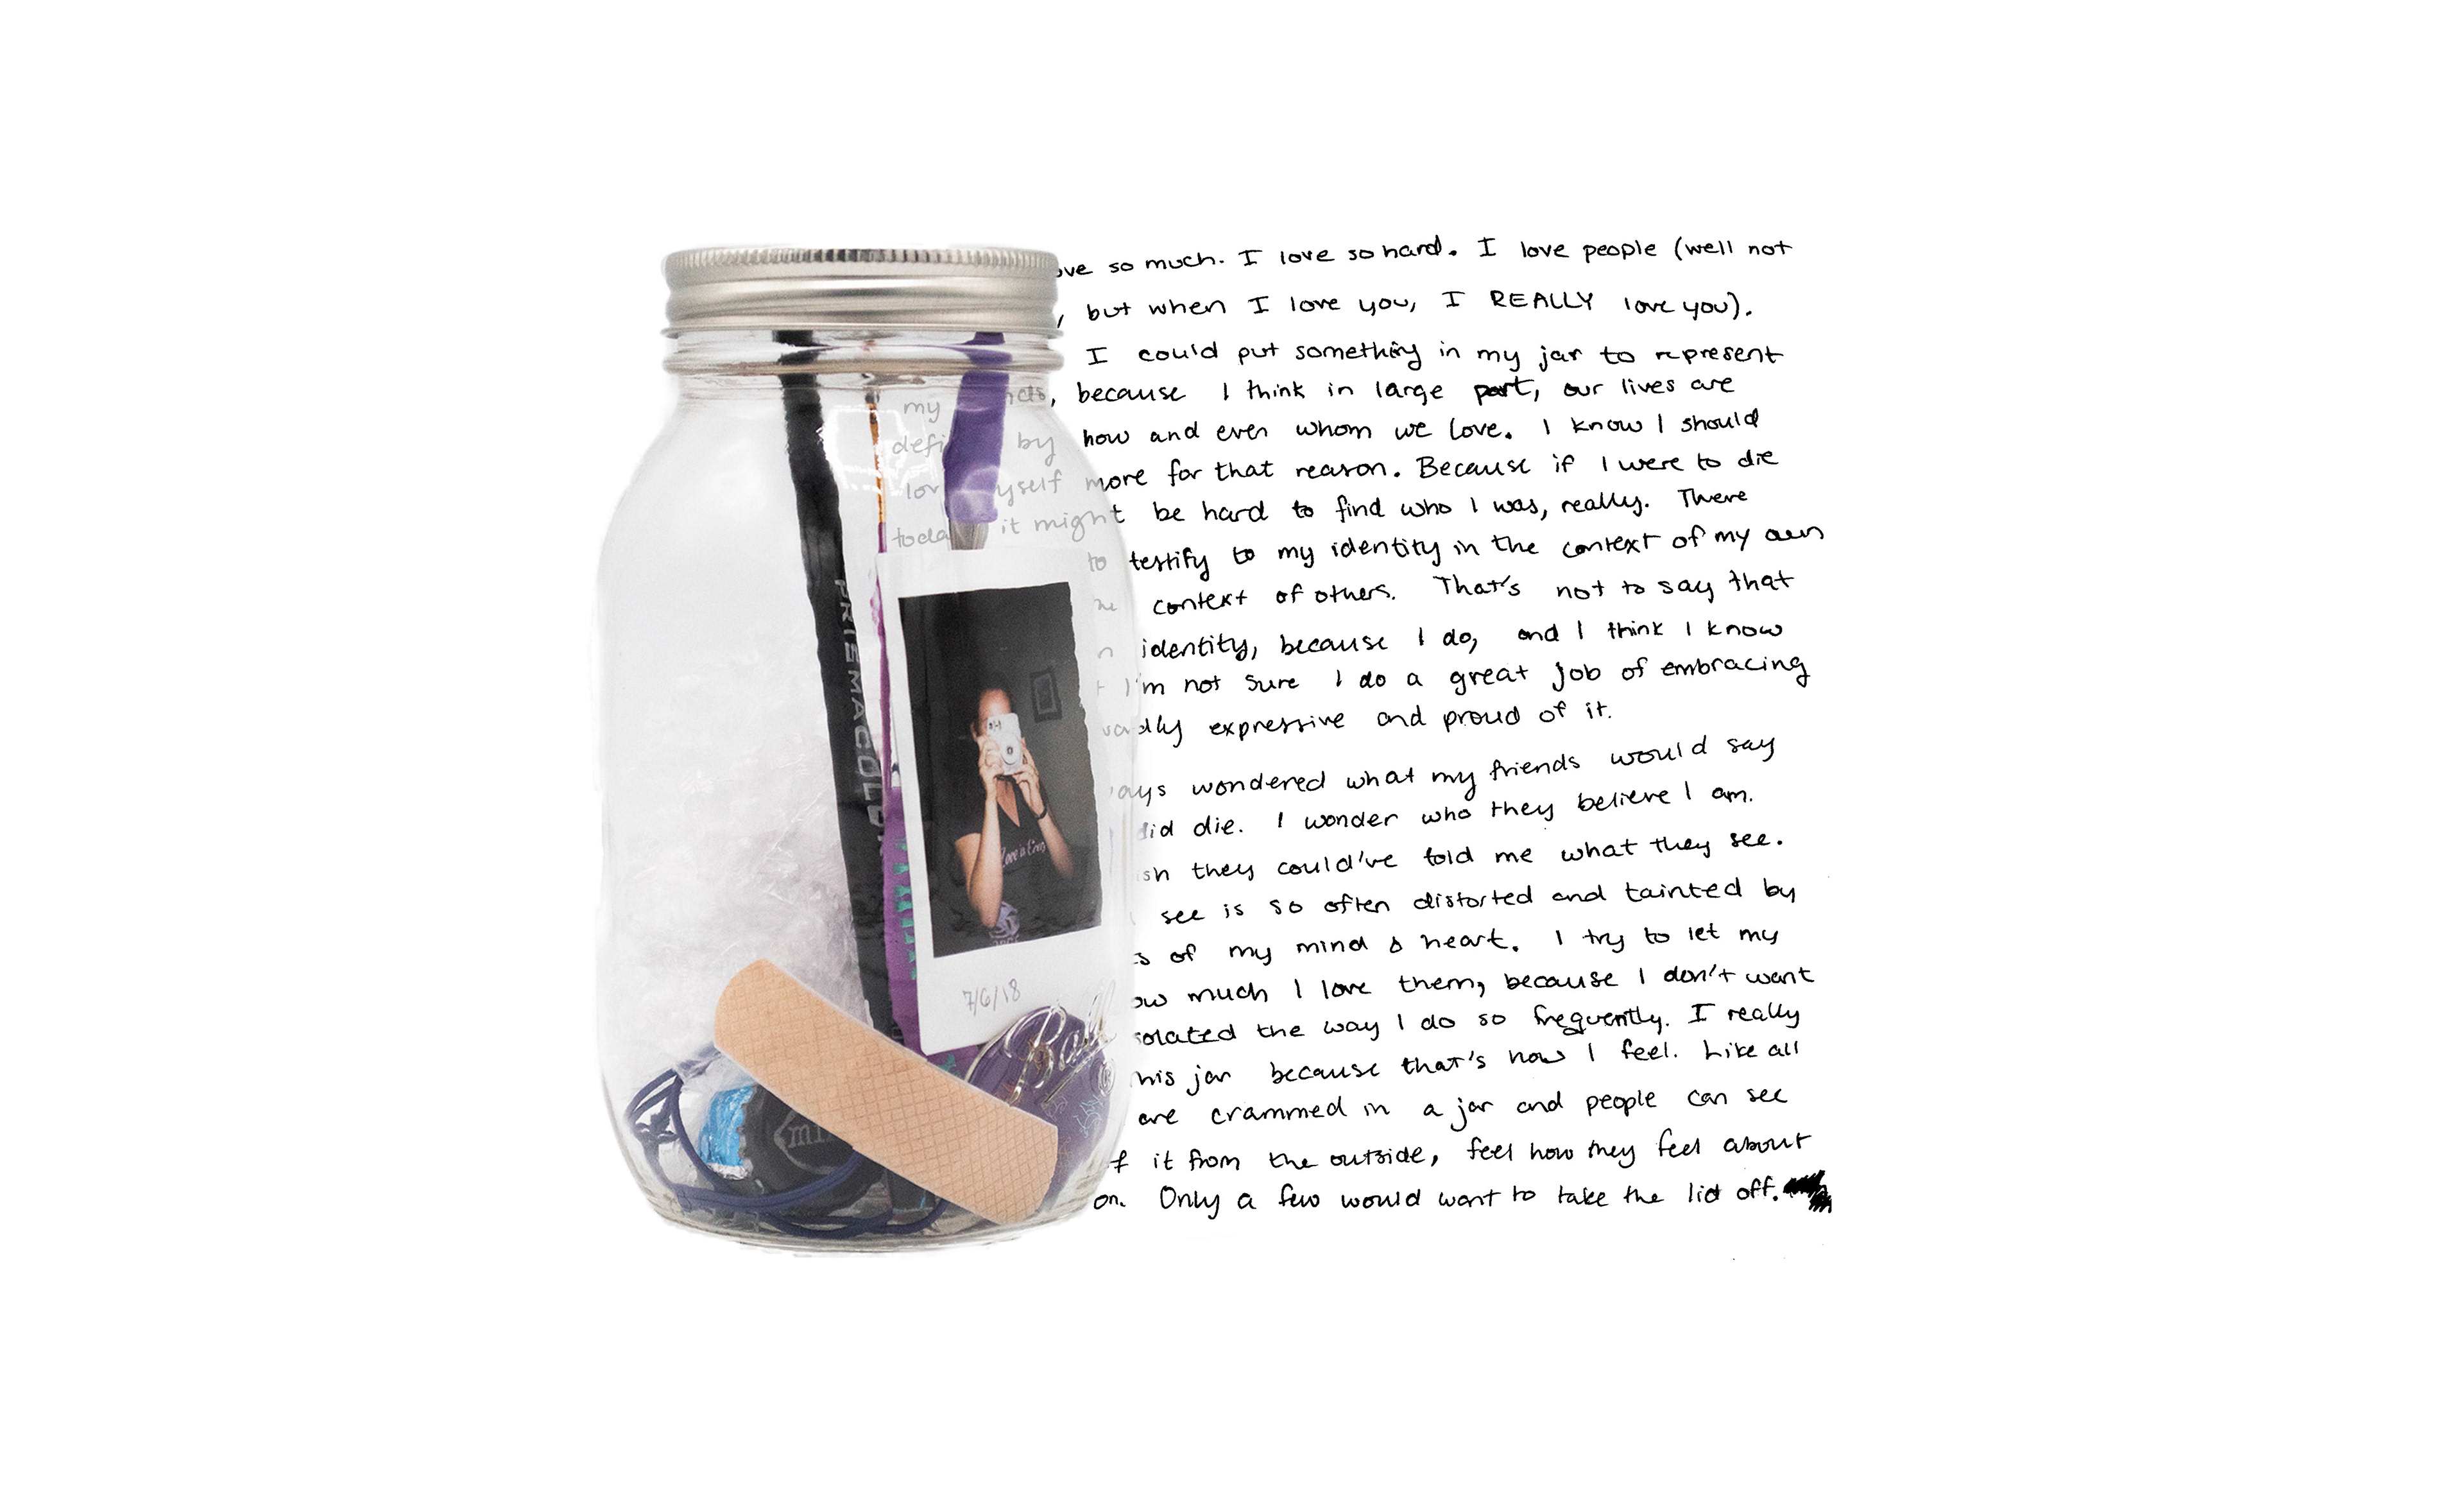 so much. I love so hard. I love people (well not
, but when I love you, I REALLY love you).
I could put something in my jar to represent
my , because I think in large part, our lives are
by how and even whom we love. I know I should
more for that reason. Because if I were to die
it might be hard to find who I was, really. There
to testify to my identity in the context of my own
context of others. That's not to say that
identity, because I do, and I think I know
I'm not sure I do a great job of embracing
expressive and proud of it.
wondered what my friends would say
did die. I wonder who they believe I am.
they could've told me what they see.
see is so often distorted and tainted by
of my mind & heart. I try to let my
much I love them, because I don't want
the way I do so frequently. I really
jar because that's how I feel. Like all
are crammed in a jar and people can see
it from the outside, feel how they feel about
on. Only a few would want to take the lid off.
PRISMACOLOR
7/6/18
Ball